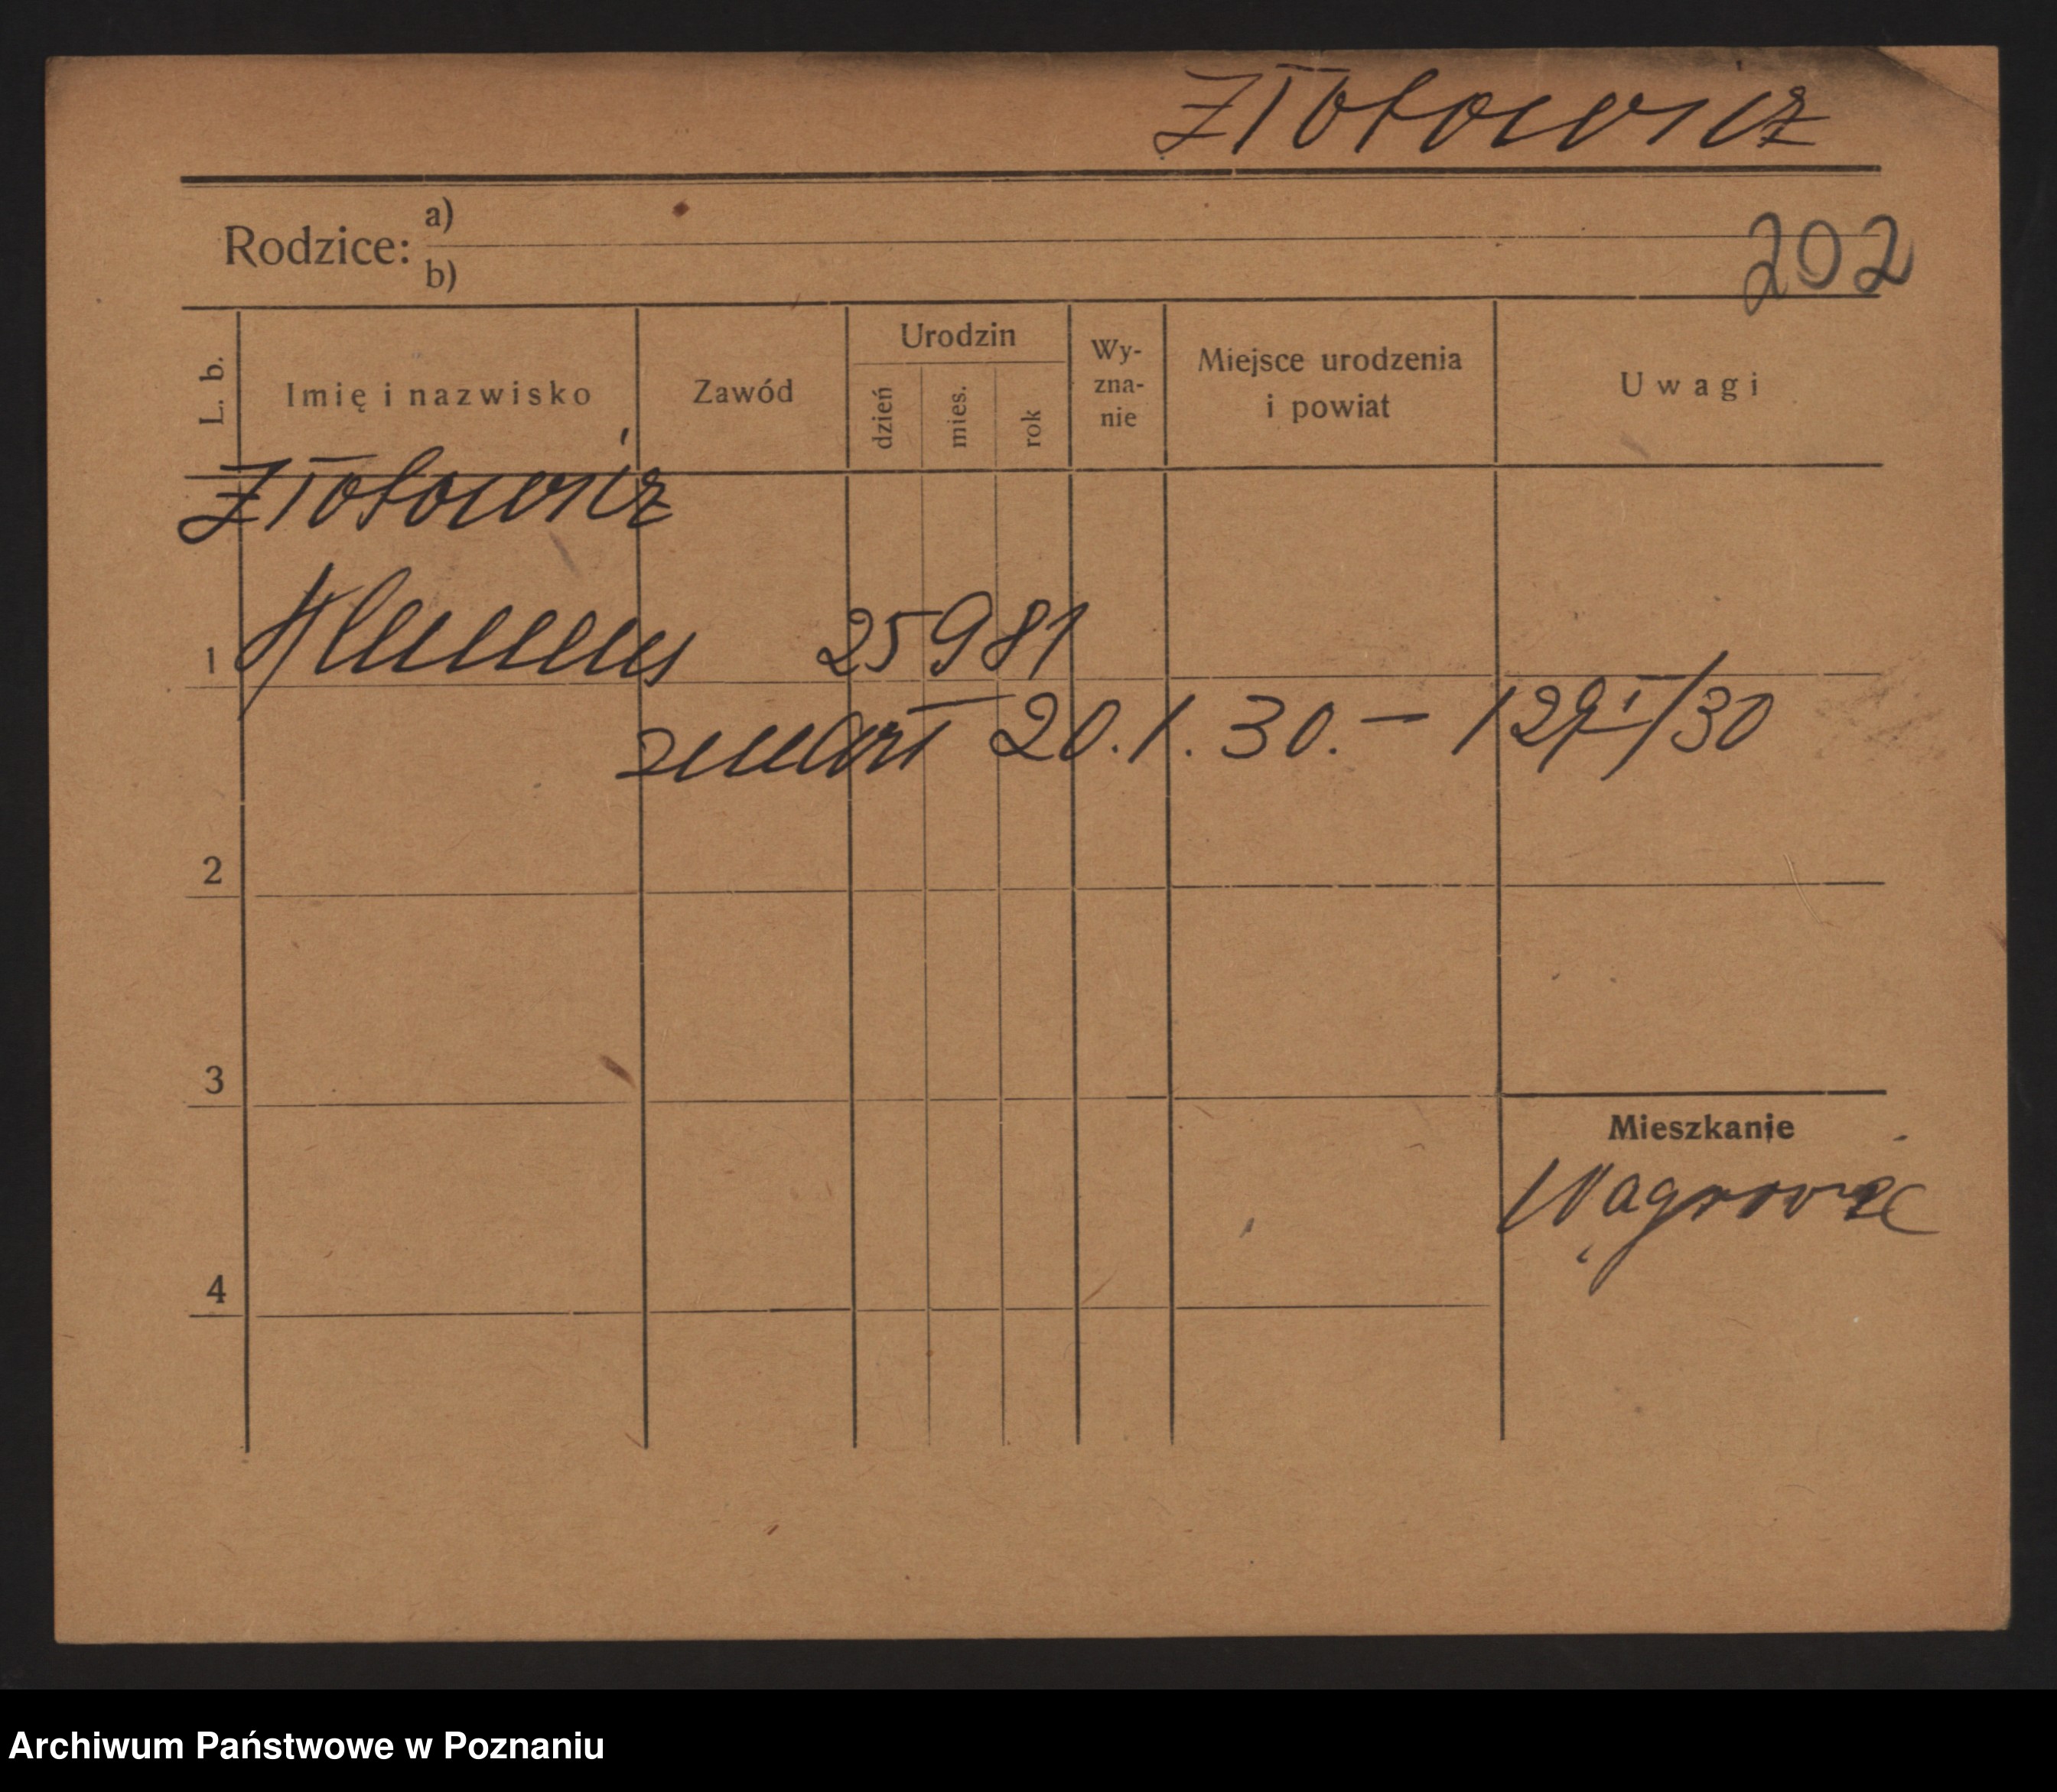 Złotowicz
Rodzice: a)
b)
202
L. b.
Imię i nazwisko
Zawód
Urodzin
dzień
mies.
rok
Wy-
zna-
nie
Miejsce urodzenia
i powiat
Uwagi
Złotowicz
1 Klemens 25 9 81
zmarł 20.1.30. –
2
3
Mieszkanie
Wągrowiec
4
Archiwum Państwowe w Poznaniu